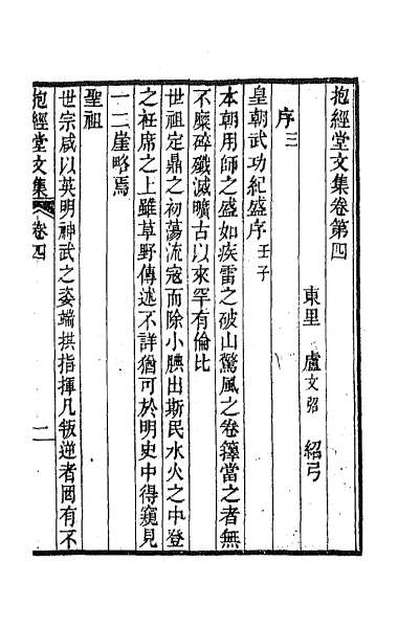 抱經堂文集卷第四
東里 盧文弨 紹弓
序三
皇朝武功紀盛序壬子
本朝用師之盛如疾雷之破山驚風之卷籜當之者無
不糜碎殲滅曠古以來罕有倫比
世祖定鼎之初蕩流寇而除小腆出斯民水火之中登
之衽席之上雖草野傳述不詳猶可於明史中得窺見
一二崖略焉
聖祖
世宗咸以英明神武之姿端拱指揮凡叛逆者罔有不
抱經堂文集 卷四 一